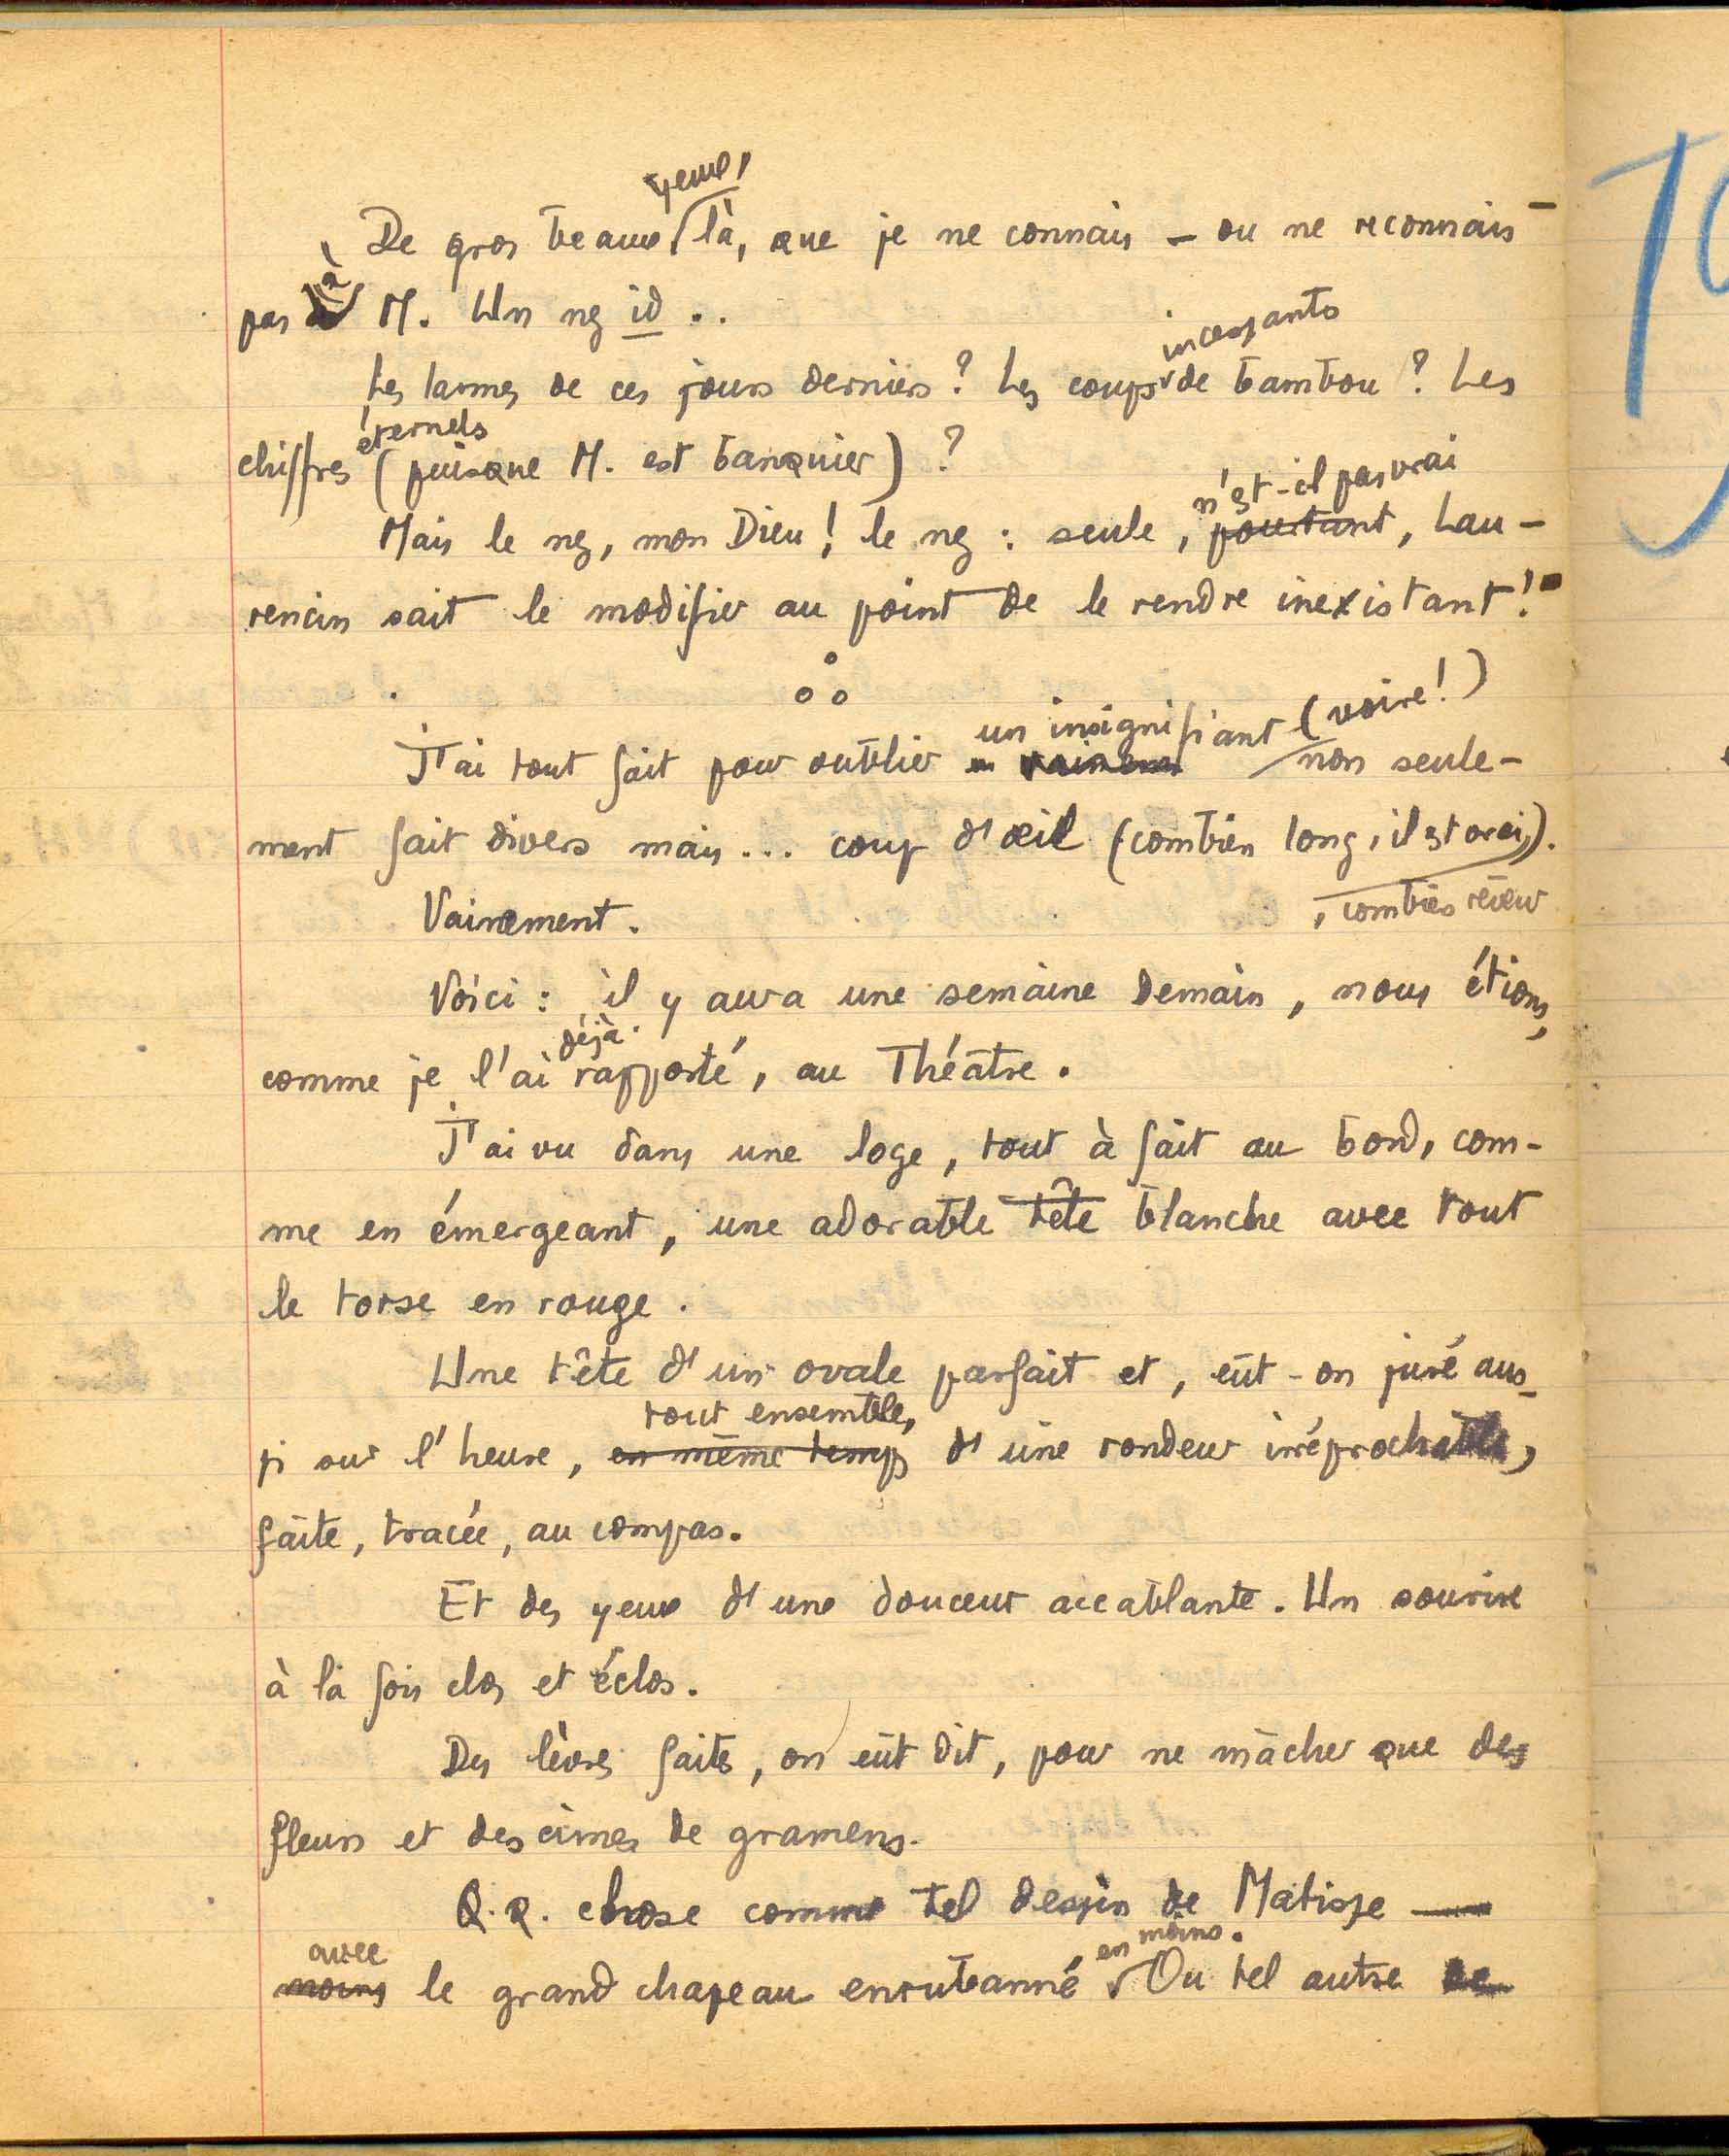 yeux,
De gros beaux là, que je ne connais – ou ne reconnais –
pas à M. Un nez id..
incessants
Les larmes de ces jours derniers? Les coups de bambou? Les
éternels
chiffres (puisque M. est banquier)?
n'est-il pas vrai
Mais le nez, mon Dieu! le nez: seule, pourtant, Lau-
rencin sait le modifier au point de le rendre inexistant!
un insignifiant (voire!)
J'ai tout fait pour oublier non seule-
ment fait divers mais... coup d'œil (combien long, il est vrai,).
, combien rêveur
Vainement.
Voici: il y aura une semaine demain, nous étions,
déjà
comme je l'ai rapporté, au Théâtre.
J'ai vu dans une loge, tout à fait au bord, com-
me en émergeant, une adorable tête blanche avec tout
le torse en rouge.
Une tête d'un ovale parfait et, eût-on juré aus-
tout ensemble,
si sur l'heure, en même temps d'une rondeur irréprochable,
faite, tracée, au compas.
Et des yeux d'une douceur accablante. Un sourire
à la fois clos et éclos.
Des lèvres faites, on eût dit, pour ne mâcher que des
fleurs et des cimes de gramens.
Q.q. chose comme tel dessin de Matisse —
avec en moins.
moins le grand chapeau enrubanné Ou tel autre de